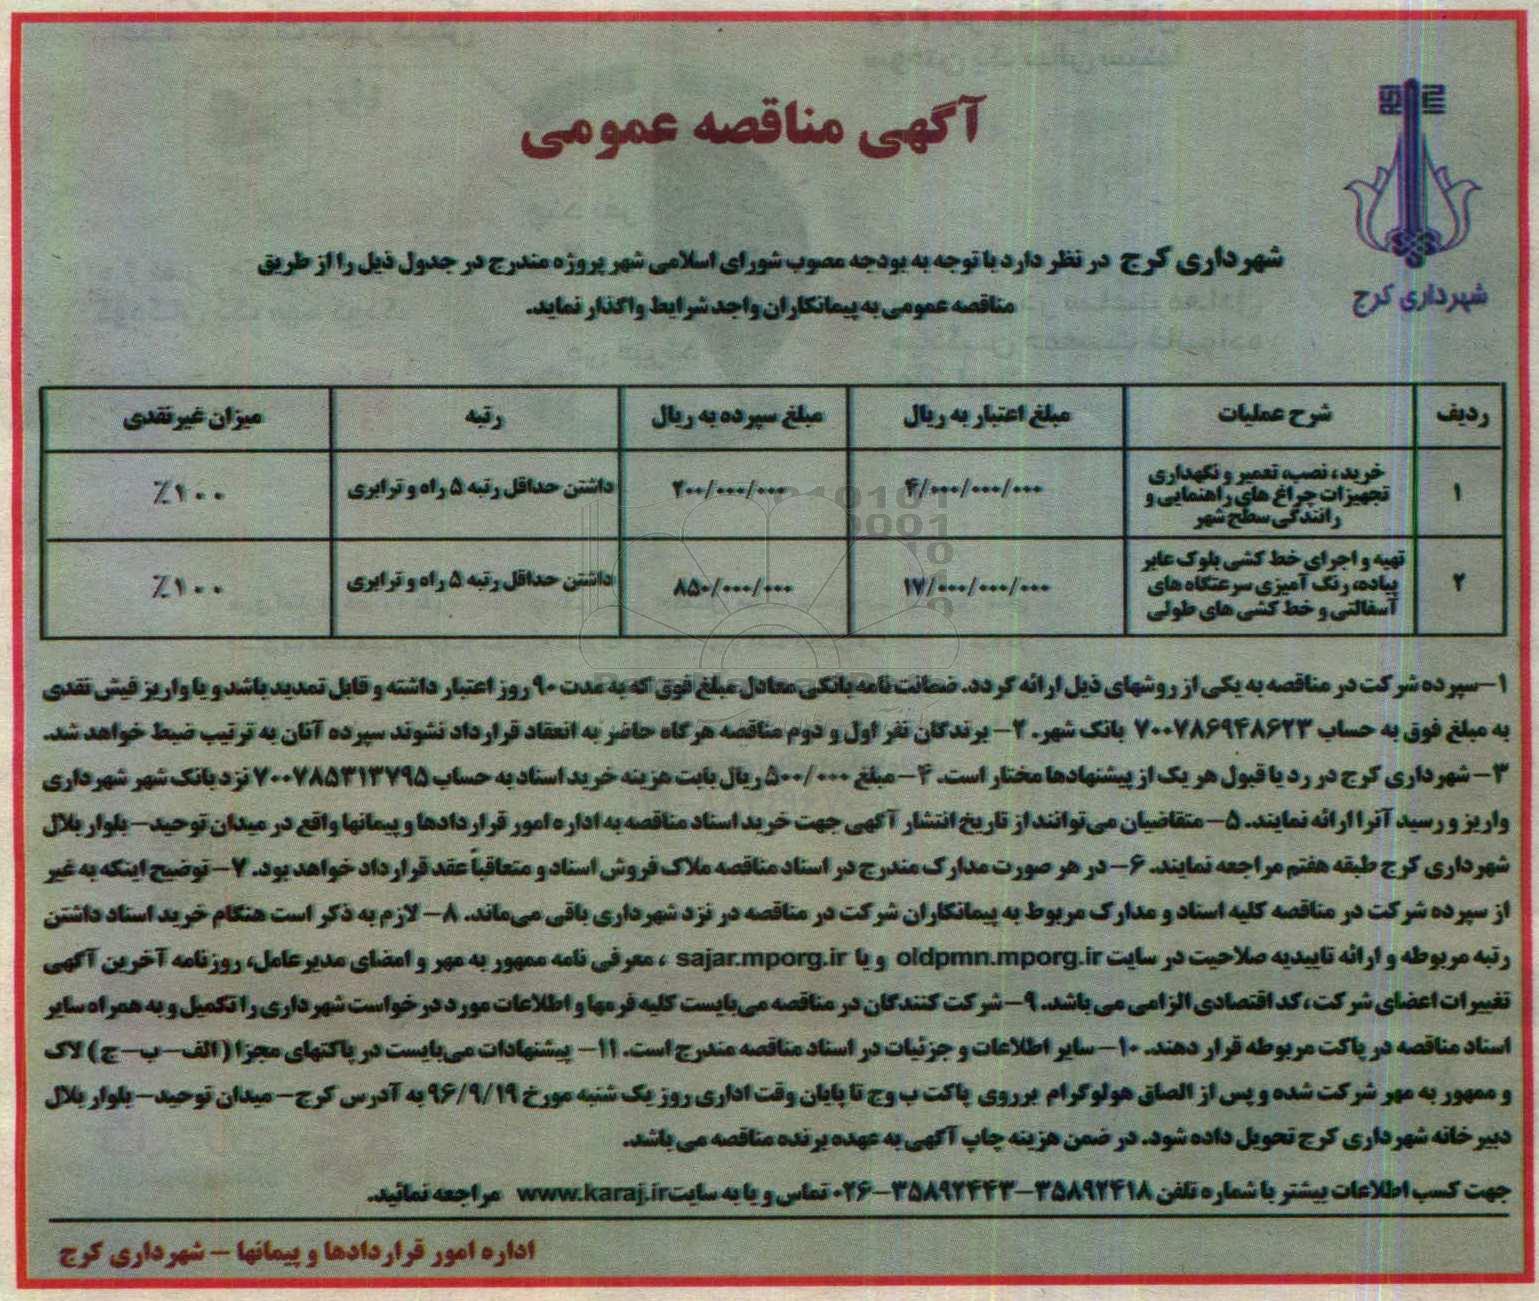 آگهی مناقصه عمومی
شهرداری کرج
شهرداری کرج در نظر دارد با توجه به بودجه مصوب شورای اسلامی شهر پروژه مندرج در جدول ذیل را از طریق
مناقصه عمومی به پیمانکاران واجد شرایط واگذار نماید.
ردیف	شرح عملیات	مبلغ اعتبار به ریال	مبلغ سپرده به ریال	رتبه	میزان غیرنقدی
۱	خرید، نصب، تعمیر و نگهداری تجهیزات چراغ های راهنمایی و رانندگی سطح شهر	۴/۰۰۰/۰۰۰/۰۰۰	۲۰۰/۰۰۰/۰۰۰	داشتن حداقل رتبه ۵ راه و ترابری	٪۱۰۰
۲	تهیه و اجرای خط کشی بلوک عابر پیاده، رنگ آمیزی سرعتگاه های آسفالتی و خط کشی های طولی	۱۷/۰۰۰/۰۰۰/۰۰۰	۸۵۰/۰۰۰/۰۰۰	داشتن حداقل رتبه ۵ راه و ترابری	٪۱۰۰
۱-سپرده شرکت در مناقصه به یکی از روشهای ذیل ارائه گردد. ضمانت نامه بانکی معادل مبلغ فوق که به مدت ۹۰ روز اعتبار داشته و قابل تمدید باشد و یا واریز فیش نقدی
به مبلغ فوق به حساب ۷۰۰۷۸۶۹۴۸۶۲۳ بانک شهر. ۲- برندگان نفر اول و دوم مناقصه هرگاه حاضر به انعقاد قرارداد نشوند سپرده آنان به ترتیب ضبط خواهد شد.
۳- شهرداری کرج در رد یا قبول هر یک از پیشنهادها مختار است. ۴- مبلغ ۵۰۰/۰۰۰ ریال بابت هزینه خرید اسناد به حساب ۷۰۰۷۸۵۳۱۳۷۹۵ نزد بانک شهر شهرداری
واریز و رسید آنرا ارائه نمایند. ۵- متقاضیان می‌توانند از تاریخ انتشار آگهی جهت خرید اسناد مناقصه به اداره امور قراردادها و پیمانها واقع در میدان توحید- بلوار بلال
شهرداری کرج طبقه هفتم مراجعه نمایند. ۶- در هر صورت مدارک مندرج در اسناد مناقصه ملاک فروش اسناد و متعاقباً عقد قرارداد خواهد بود. ۷- توضیح اینکه به غیر
از سپرده شرکت در مناقصه کلیه اسناد و مدارک مربوط به پیمانکاران شرکت در مناقصه در نزد شهرداری باقی می‌ماند. ۸- لازم به ذکر است هنگام خرید اسناد داشتن
رتبه مربوطه و ارائه تاییدیه صلاحیت در سایت oldpmn.mporg.ir و یا sajar.mporg.ir ، معرفی نامه ممهور به مهر و امضای مدیرعامل، روزنامه آخرین آگهی
تغییرات اعضای شرکت، کد اقتصادی الزامی می باشد. ۹- شرکت کنندگان در مناقصه می‌بایست کلیه فرمها و اطلاعات مورد درخواست شهرداری را تکمیل و به همراه سایر
اسناد مناقصه در پاکت مربوطه قرار دهند. ۱۰- سایر اطلاعات و جزئیات در اسناد مناقصه مندرج است. ۱۱- پیشنهادات می‌بایست در پاکتهای مجزا (الف- ب- ج) لاک
و ممهور به مهر شرکت شده و پس از الصاق هولوگرام برروی پاکت ب وج تا پایان وقت اداری روز یک شنبه مورخ ۹۶/۹/۱۹ به آدرس کرج- میدان توحید- بلوار بلال
دبیرخانه شهرداری کرج تحویل داده شود. در ضمن هزینه چاپ آگهی به عهده برنده مناقصه می باشد.
جهت کسب اطلاعات بیشتر با شماره تلفن ۳۵۸۹۲۴۱۸-۳۵۸۹۲۴۴۳-۰۲۶ تماس و یا به سایت www.karaj.ir مراجعه نمائید.
اداره امور قراردادها و پیمانها - شهرداری کرج